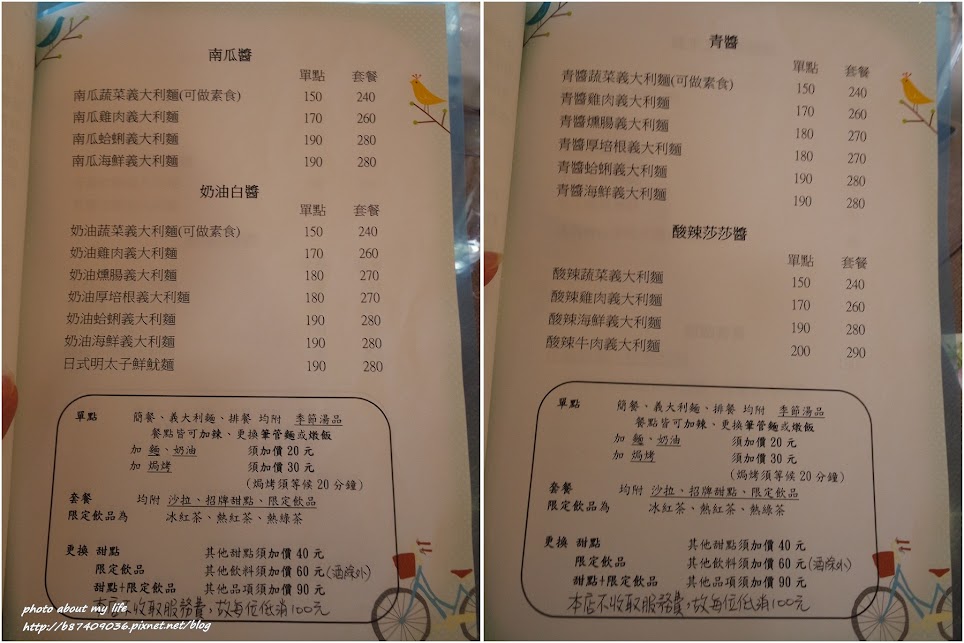 南瓜醬
單點 套餐
南瓜蔬菜義大利麵(可做素食) 150 240
南瓜雞肉義大利麵 170 260
南瓜蛤蜊義大利麵 190 280
南瓜海鮮義大利麵 190 280
奶油白醬
單點 套餐
奶油蔬菜義大利麵(可做素食) 150 240
奶油雞肉義大利麵 170 260
奶油燻腸義大利麵 180 270
奶油厚培根義大利麵 180 270
奶油蛤蜊義大利麵 190 280
奶油海鮮義大利麵 190 280
日式明太子鮮魷麵 190 280
單點 簡餐、義大利麵、排餐 均附 季節湯品
餐點皆可加辣、更換筆管麵或燉飯
加 麵、奶油 須加價 20 元
加 焗烤 須加價 30 元
(焗烤須等候 20 分鐘)
套餐 均附 沙拉、招牌甜點、限定飲品
限定飲品為 冰紅茶、熱紅茶、熱綠茶
更換 甜點 其他甜點須加價 40 元
限定飲品 其他飲料須加價 60 元(酒除外)
甜點+限定飲品 其他品項須加價 90 元
本店不收取服務費，故每位低消100元
photo about my life
http://b87409036.pixnet.net/blog
青醬
單點 套餐
青醬蔬菜義大利麵(可做素食) 150 240
青醬雞肉義大利麵 170 260
青醬燻腸義大利麵 180 270
青醬厚培根義大利麵 180 270
青醬蛤蜊義大利麵 190 280
青醬海鮮義大利麵 190 280
酸辣莎莎醬
單點 套餐
酸辣蔬菜義大利麵 150 240
酸辣雞肉義大利麵 170 260
酸辣海鮮義大利麵 190 280
酸辣牛肉義大利麵 200 290
單點 簡餐、義大利麵、排餐 均附 季節湯品
餐點皆可加辣、更換筆管麵或燉飯
加 麵、奶油 須加價 20 元
加 焗烤 須加價 30 元
(焗烤須等候 20 分鐘)
套餐 均附 沙拉、招牌甜點、限定飲品
限定飲品為 冰紅茶、熱紅茶、熱綠茶
更換 甜點 其他甜點須加價 40 元
限定飲品 其他飲料須加價 60 元(酒除外)
甜點+限定飲品 其他品項須加價 90 元
本店不收取服務費，故每位低消100元